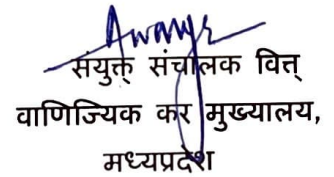 संयुक्त् संचालक वित्त्
वाणिज्यिक कर मुख्यालय,
मध्यप्रदेश